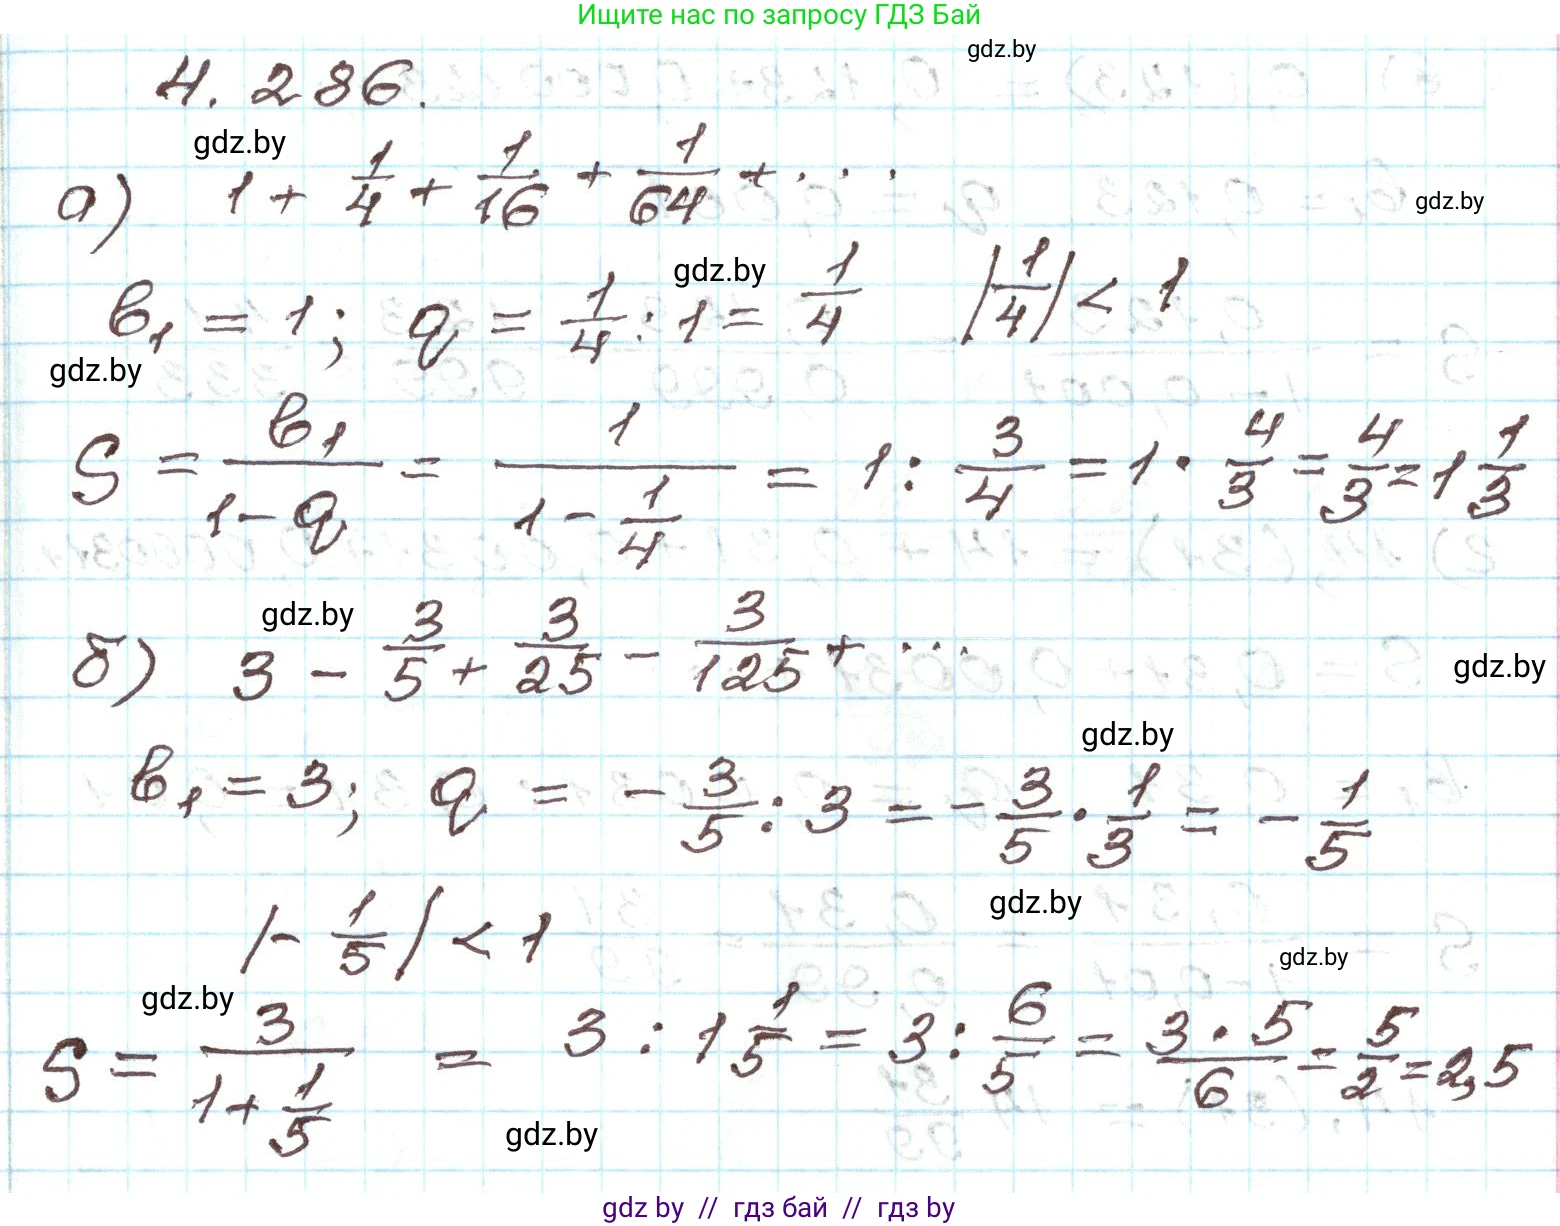 Ищите нас по запросу ГДЗ Бай
gdz.by
4.286.
gdz.by
а) 1 + 1/4 + 1/16 + 1/64 + ...
gdz.by
gdz.by
b₁ = 1; q = 1/4 : 1 = 1/4 |1/4| < 1
gdz.by
S = b₁/(1-q) = 1/(1 - 1/4) = 1 : 3/4 = 1 · 4/3 = 4/3 = 1 1/3
gdz.by
б) 3 - 3/5 + 3/25 - 3/125 + ...
gdz.by
gdz.by
b₁ = 3; q = - 3/5 : 3 = - 3/5 · 1/3 = - 1/5
gdz.by
|- 1/5| < 1
gdz.by
gdz.by
S = 3/(1 + 1/5) = 3 : 1 1/5 = 3 : 6/5 = (3 · 5)/6 = 5/2 = 2,5
gdz.by
gdz by // гдз бай // гдз by